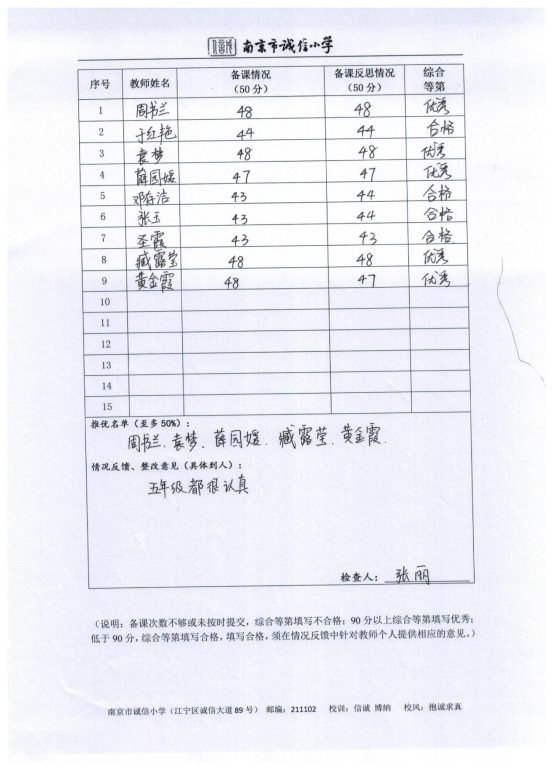 南京市诚信小学
序号 教师姓名 备课情况（50 分） 备课反思情况（50 分） 综合等第
1 周书兰 48 48 优秀
2 于红艳 44 44 合格
3 袁梦 48 48 优秀
4 薛园媛 47 47 优秀
5 邓存洁 43 44 合格
6 张玉 43 44 合格
7 圣霞 43 43 合格
8 臧露莹 48 48 优秀
9 黄金霞 48 47 优秀
10
11
12
13
14
15
推优名单（至多 50%）：
周书兰、袁梦、薛园媛、臧露莹、黄金霞.
情况反馈、整改意见（具体到人）：
五年级都很认真
检查人：张丽
（说明：备课次数不够或未按时提交，综合等第填写不合格；90 分以上综合等第填写优秀；
低于 90 分，综合等第填写合格，填写合格，须在情况反馈中针对教师个人提供相应的意见。）
南京市诚信小学（江宁区诚信大道 89 号） 邮编：211102 校训：信诚 博纳 校风：抱诚求真